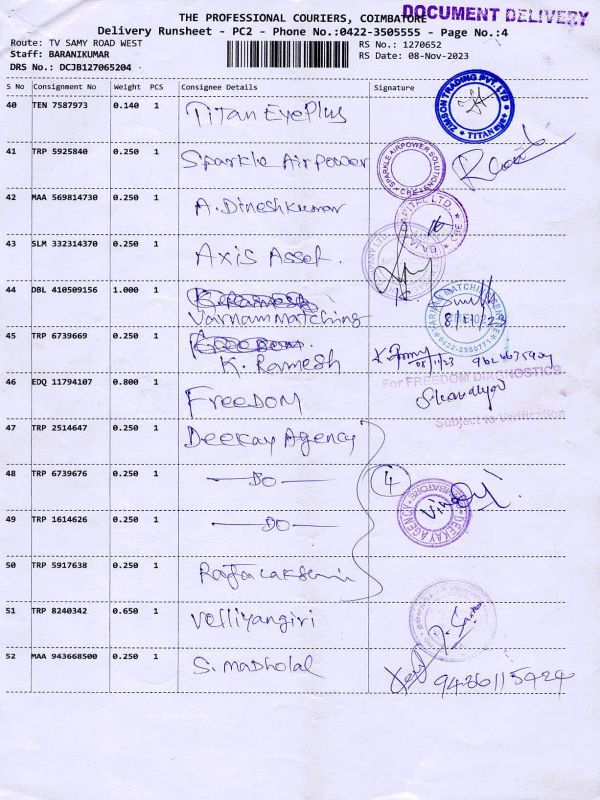 DOCUMENT DELIVERY
THE PROFESSIONAL COURIERS, COIMBATORE
Delivery Runsheet - PC2 - Phone No.:0422-3505555 - Page No.:4
Route: TV SAMY ROAD WEST RS No.: 1270652
Staff: BARANIKUMAR RS Date: 08-Nov-2023
DRS No.: DCJB127065204
S No Consignment No Weight PCS Consignee Details Signature
40 TEN 7587973 0.140 1 Titan EyePlus
ZIMSON TRADING PVT. LTD TITAN eye+
41 TRP 5925840 0.250 1 Sparkle Airpower
SPARKLE AIRPOWER SOLUTION CBE
42 MAA 569814730 0.250 1 A. Dineshkumar
43 SLM 332314370 0.250 1 Axis Asset.
44 DBL 410509156 1.000 1 K. Ramesh
Varnam matching
8/11/23
45 TRP 6739669 0.250 1 Freedom
K. Ramesh
08/11/23
46 EDQ 11794107 0.800 1 Freedom
For FREEDOM DIAGNOSTICS
Subject to Verification
47 TRP 2514647 0.250 1 Deekay Agency
48 TRP 6739676 0.250 1 —DO—
4
49 TRP 1614626 0.250 1 —DO—
DEEKAY AGENCY COIMBATORE
50 TRP 5917638 0.250 1
51 TRP 8240342 0.650 1 Velliyangiri
52 MAA 943668500 0.250 1 S. Madholal